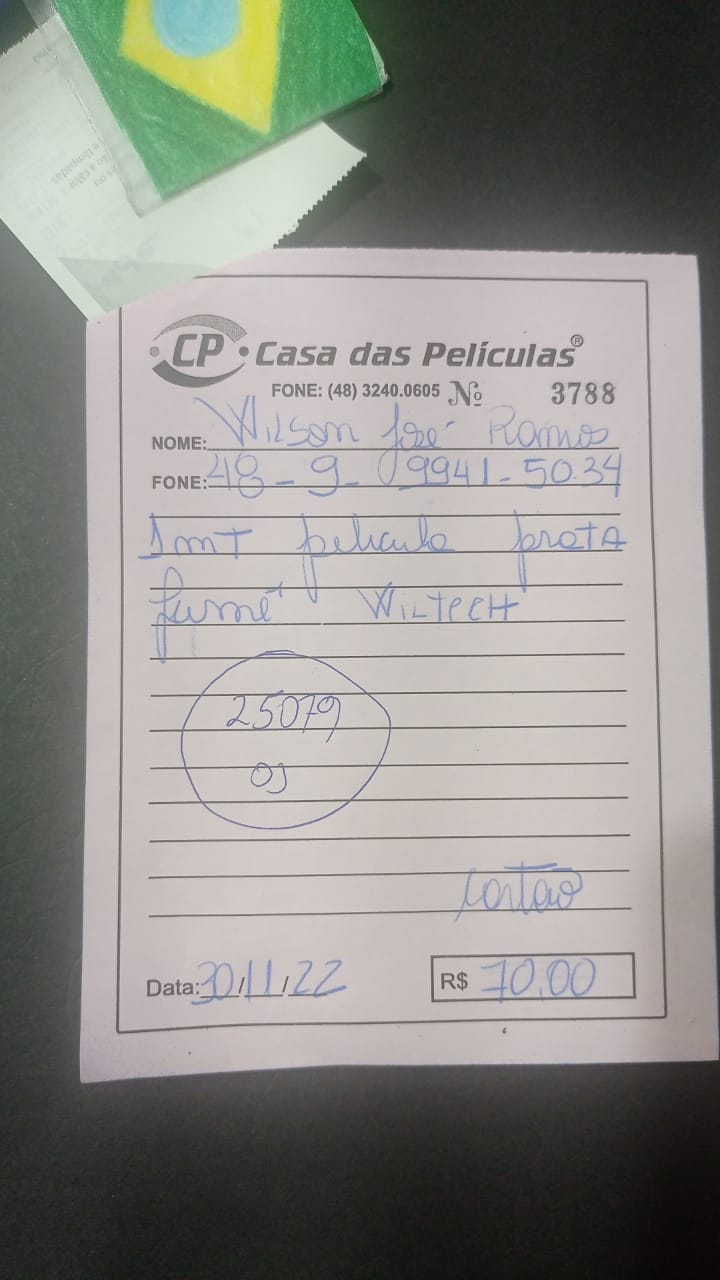 CP Casa das Películas®
FONE: (48) 3240.0605 No 3788
NOME: Wilson José Ramos
FONE: 48-9-9941-50.34
1mt pelicula preta
fumê WILTECH
25079
Data: 30/11/22
cartão
R$ 70,00